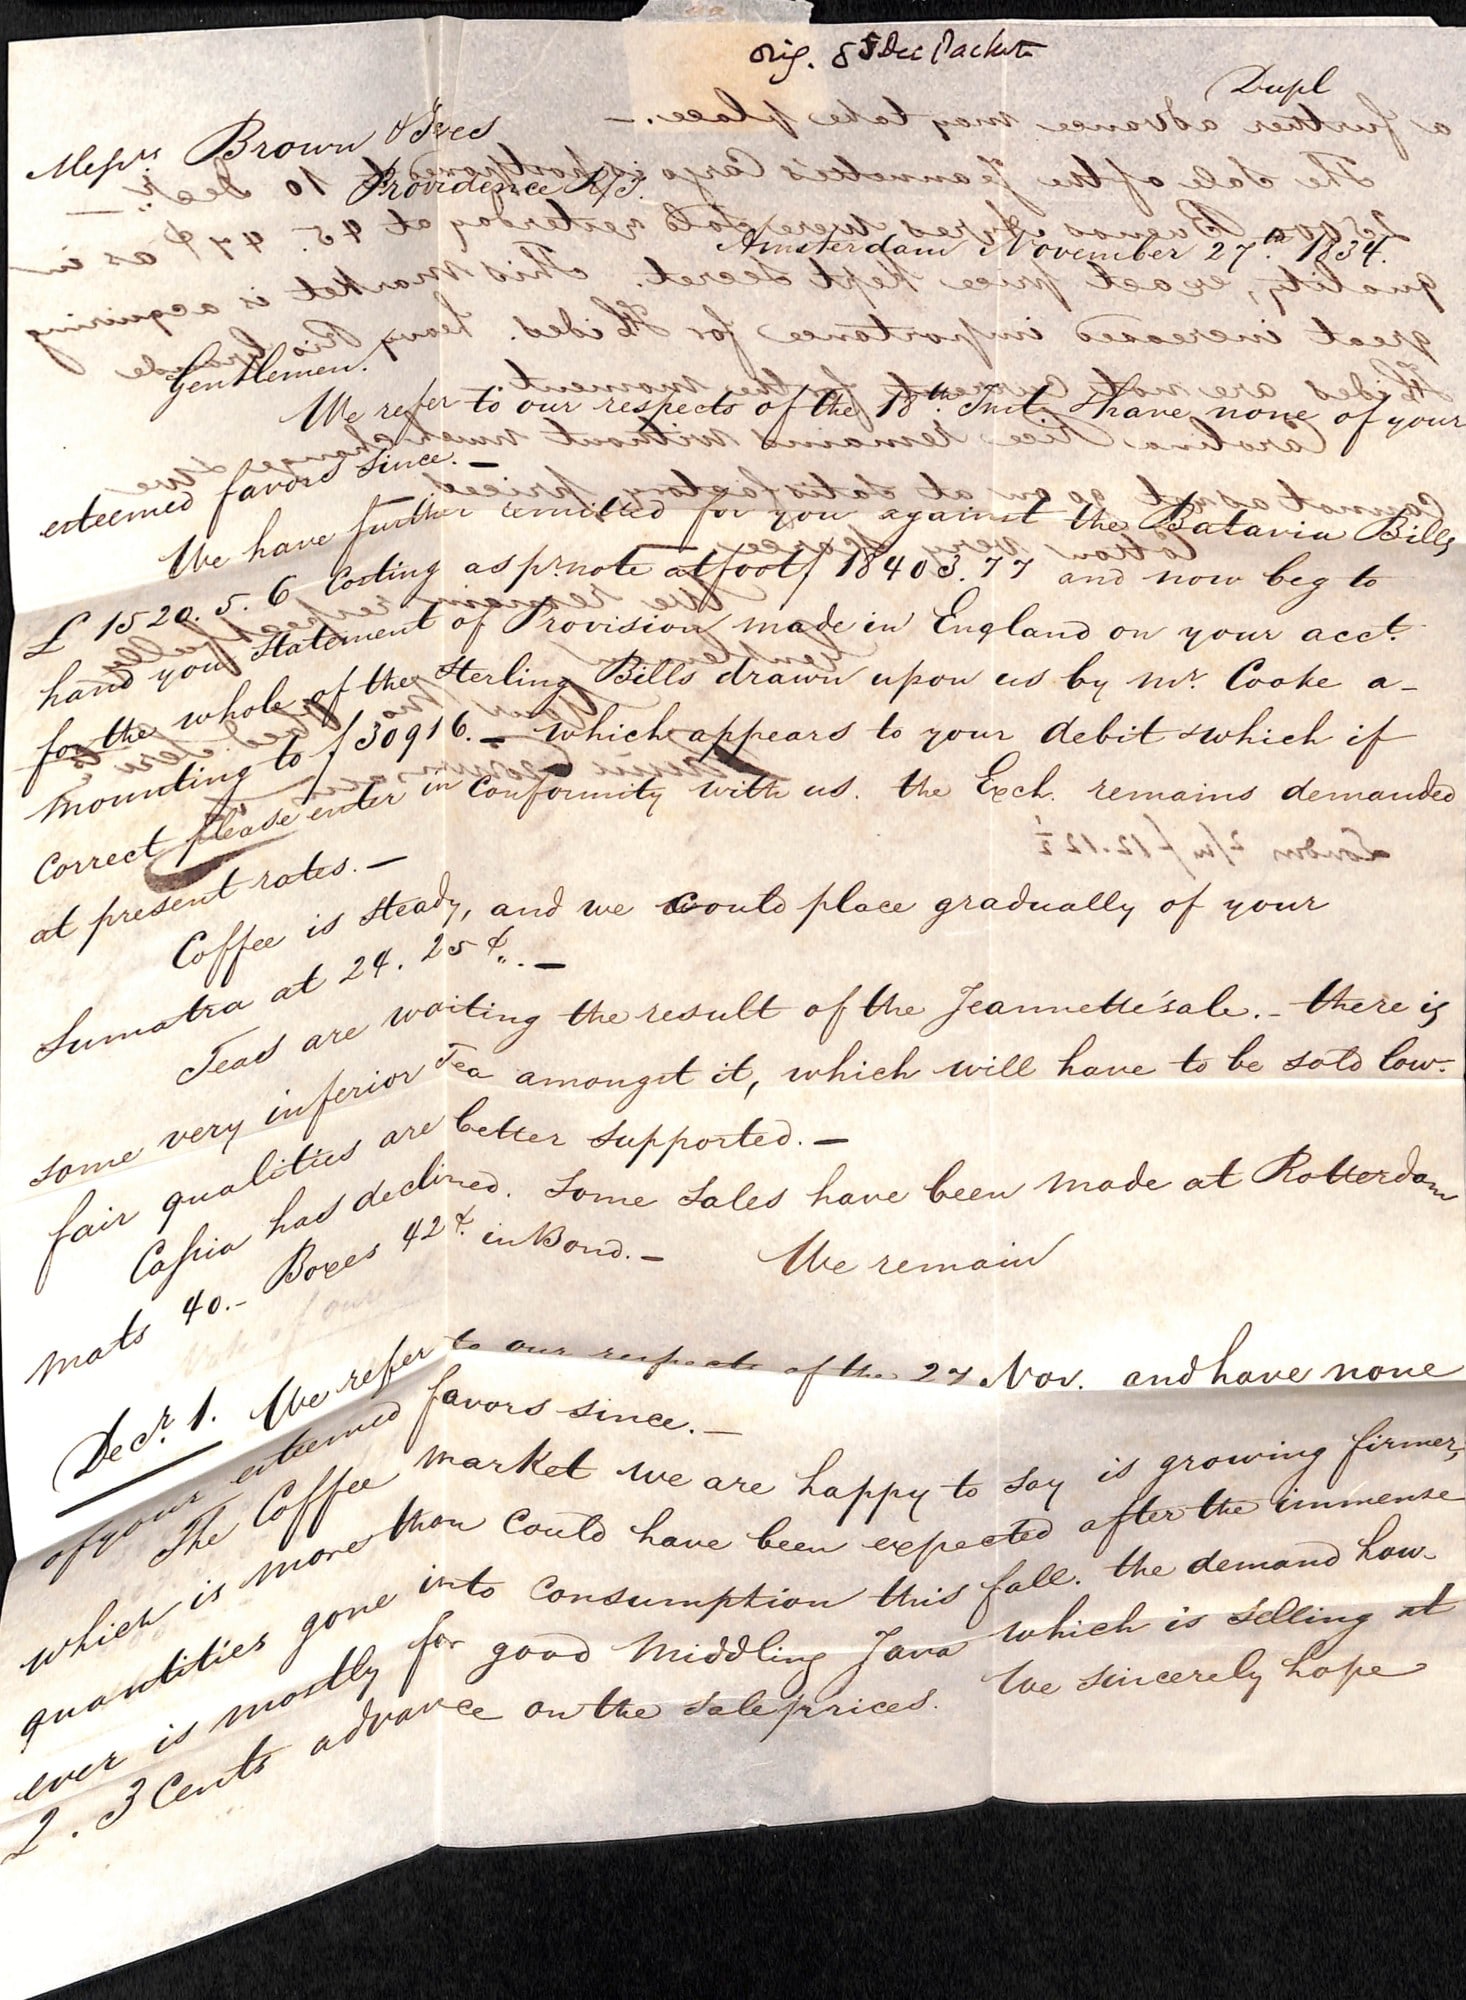 orig. 8 Dec Packet
Dupl
Messrs Brown & Ives
Providence R/I.
Amsterdam November 27th. 1834.
Gentlemen.
We refer to our respects of the 18th. Inst, & have none of your
esteemed favors since. –
We have further remitted for you against the Batavia Bills
£ 1520. 5. 6 Costing as pr. note at foot f 18403.77 and now beg to
hand you Statement of Provision made in England on your acct.
for the whole of the Sterling Bills drawn upon us by Mr. Cooke a-
mounting to f 30916. – which appears to your debit & which if
correct please enter in conformity with us. the Exch. remains demanded
at present rates. –
Coffee is steady, and we could place gradually of your
Sumatra at 24. 25 ¢. –
Teas are waiting the result of the Jeannette's sale. – there is
some very inferior Tea amongst it, which will have to be sold low.
fair qualities are better supported. –
Cassia has declined. Some Sales have been made at Rotterdam
mats 40. – Boxes 42 ¢. in Bond. – We remain
Decr. 1. We refer to our respects of the 27 Nov. and have none
of your esteemed favors since. –
The Coffee market we are happy to say is growing firmer,
which is more than could have been expected after the immense
quantities gone into consumption this fall. the demand how-
ever is mostly for good middling Java which is selling at
2. 3 Cents advance on the sale prices. We sincerely hope
a further advance may take place. –
The Sale of the Jeannette's Cargo is postponed to 10 Decr. –
25000 Buenos Ayres were sold yesterday at 45. 47 ¢ as in
quality, exact price kept secret. This market is acquiring
great increased importance for Hides. heavy Rio Grande
Hides are not current for the moment.
Carolina Rice remains without much change & we
cannot as yet go on at satisfactory prices
Cotton very scarce
We remain respectfully
Gentlemen
London 2/m f 12.12½